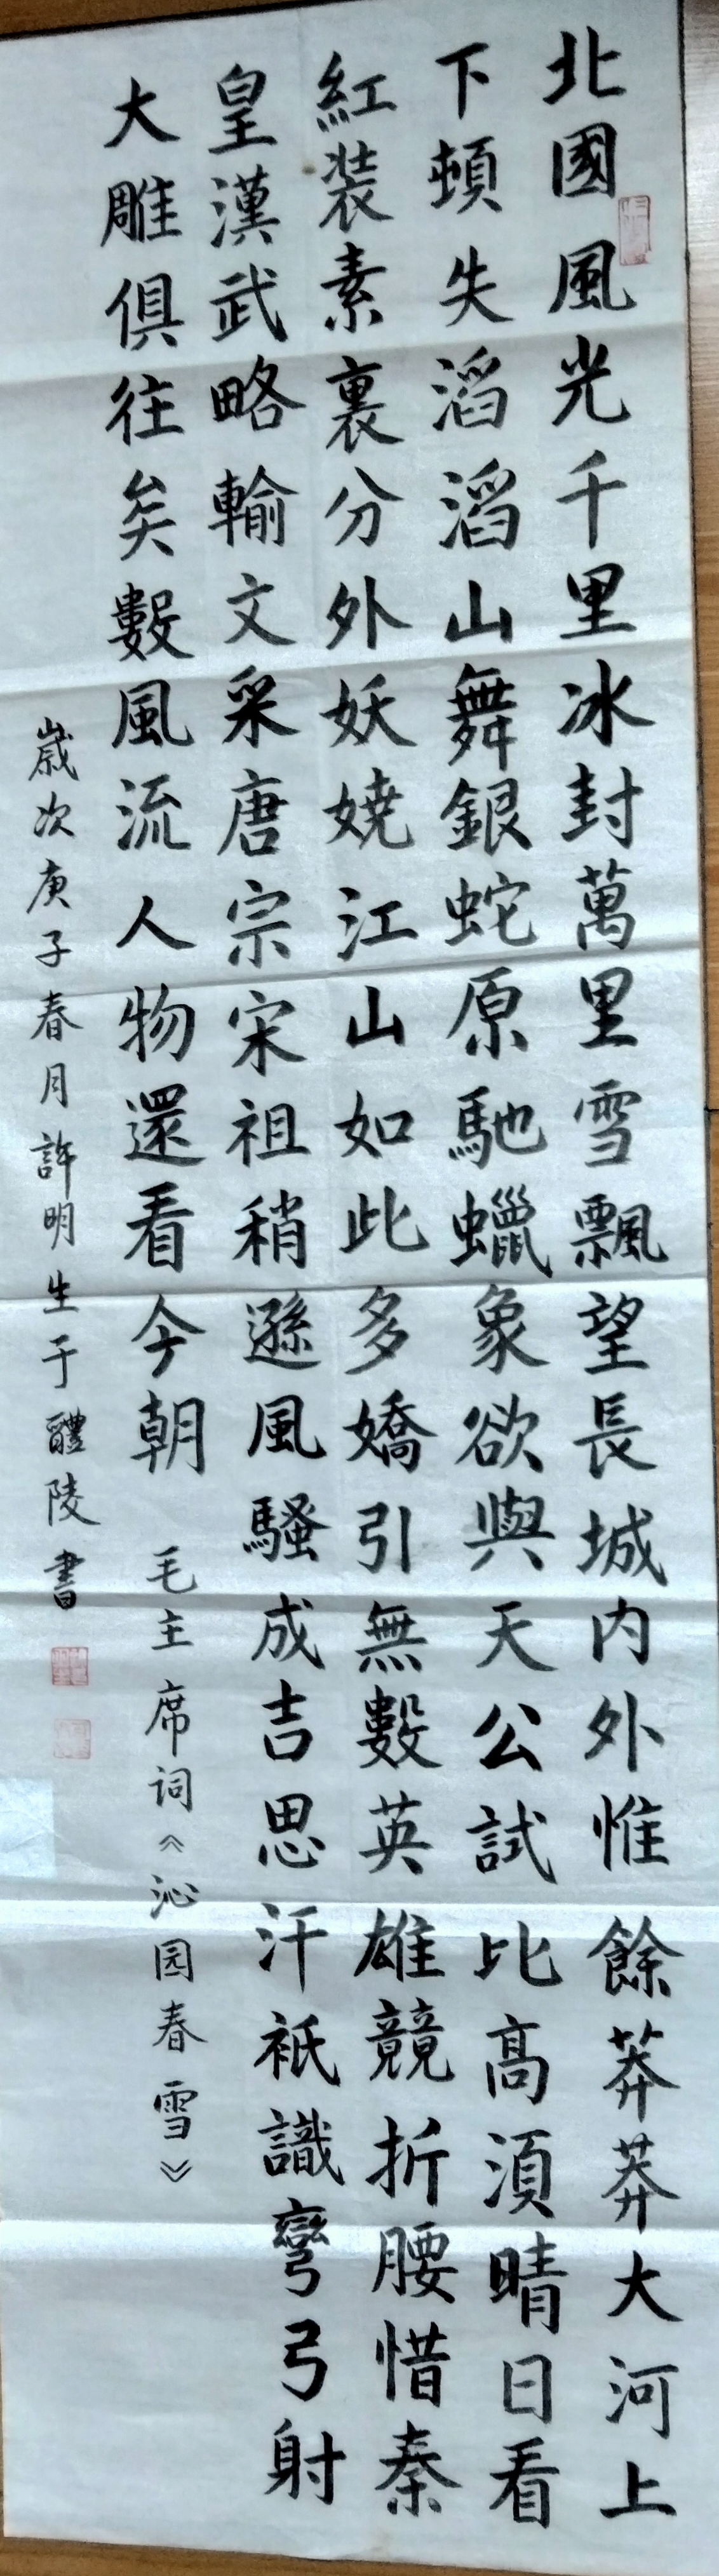 北國風光千里冰封萬里雪飄望長城内外惟餘莽莽大河上
下頓失滔滔山舞銀蛇原馳蠟象欲與天公試比高須晴日看
紅装素裹分外妖嬈江山如此多嬌引無數英雄競折腰惜秦
皇漢武略輸文采唐宗宋祖稍遜風騷成吉思汗祇識彎弓射
大雕俱往矣數風流人物還看今朝 毛主席词《沁园春雪》
歲次庚子春月許明生于醴陵書